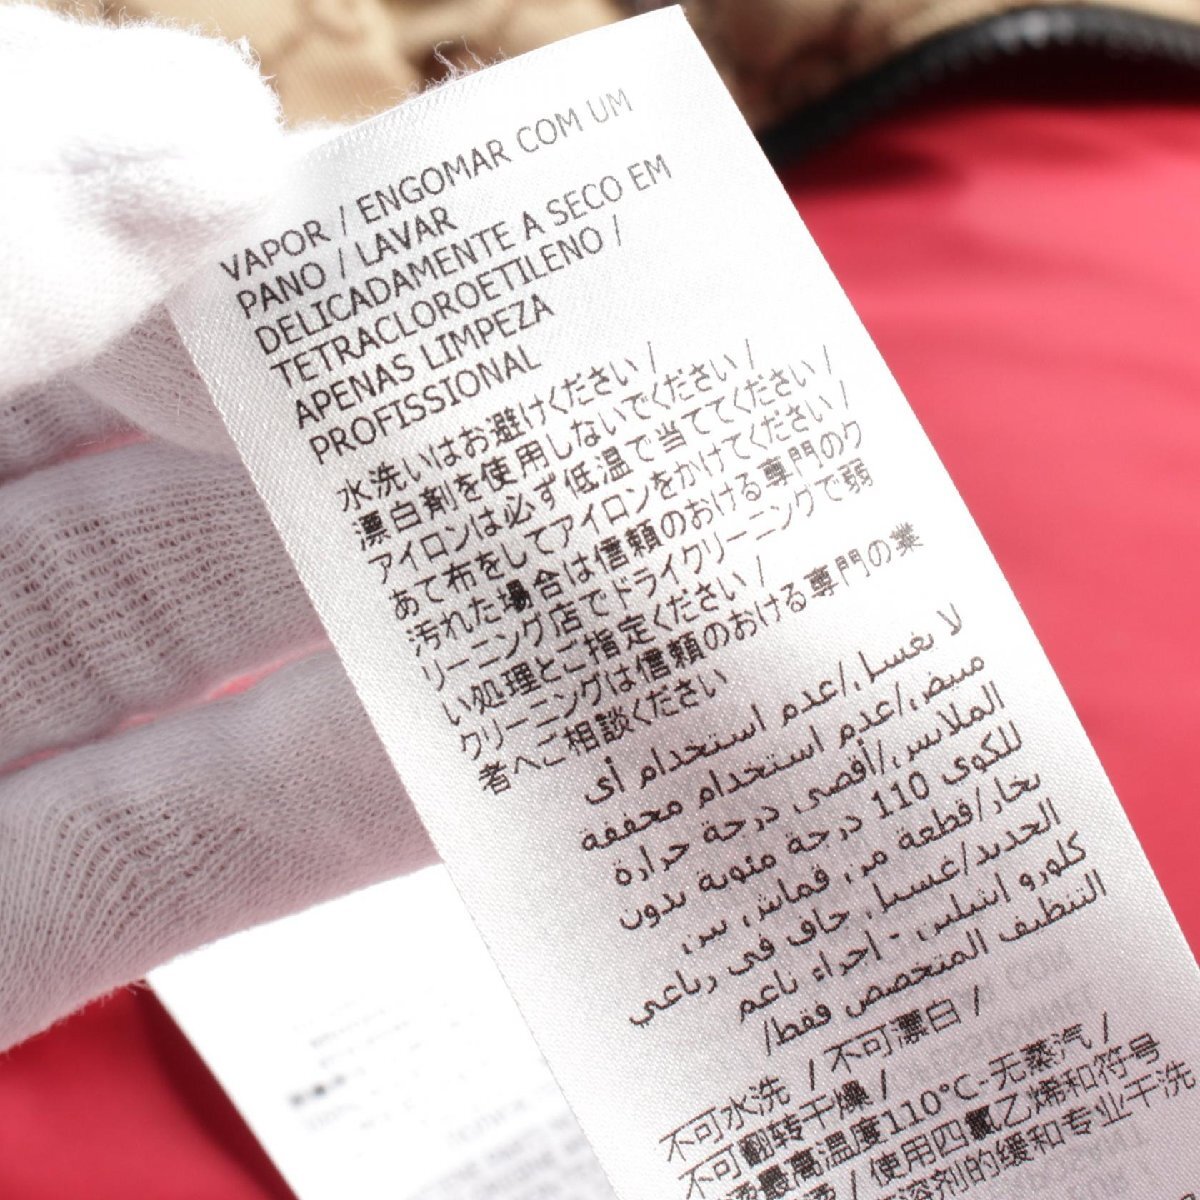 VAPOR / ENGOMAR COM UM
PANO / LAVAR
DELICADAMENTE A SECO EM
TETRACLOROETILENO /
APENAS LIMPEZA
PROFISSIONAL
水洗いはお避けください /
漂白剤を使用しないでください /
アイロンは必ず低温で当ててください /
あて布をしてアイロンをかけてください /
汚れた場合は信頼のおける専門のク
リーニング店でドライクリーニングで弱
い処理とご指定ください /
クリーニングは信頼のおける専門の業
者へご相談ください
لا يغسل/عدم استخدام أى
مبيض/عدم استخدام مجففة
الملابس/أقصى درجة حرارة
للكوى 110 درجة مئوية بدون
بخار/قطعة من قماش بين
الحديد/غسيل جاف فى رباعي
كلورو إيثيلين - إجراء ناعم
التنظيف المتخصص فقط/
不可水洗 / 不可漂白 /
不可翻转干燥 /
最高温度110°C-无蒸汽 /
/ 使用四氯乙烯和符号
溶剂的缓和专业干洗